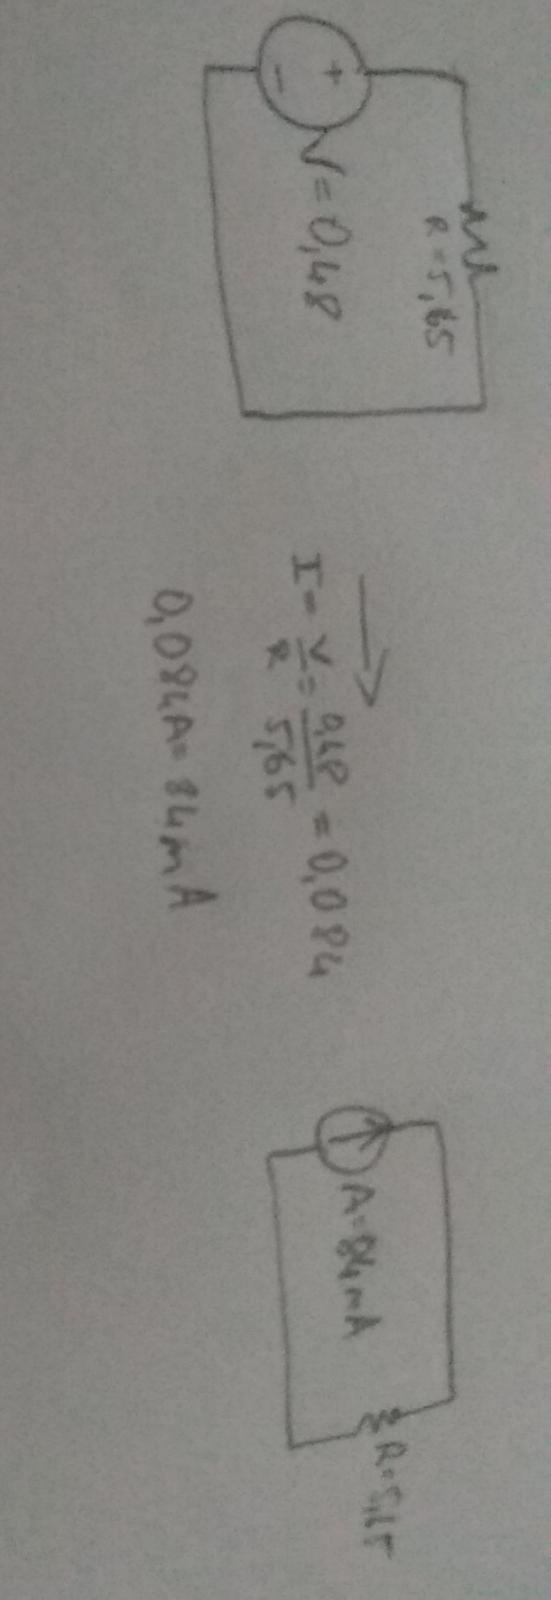 R=5,65
+
V=0,48
−
I=V/R=0,48/5,65=0,084
0,084A=84mA
A=84mA
R=5,65